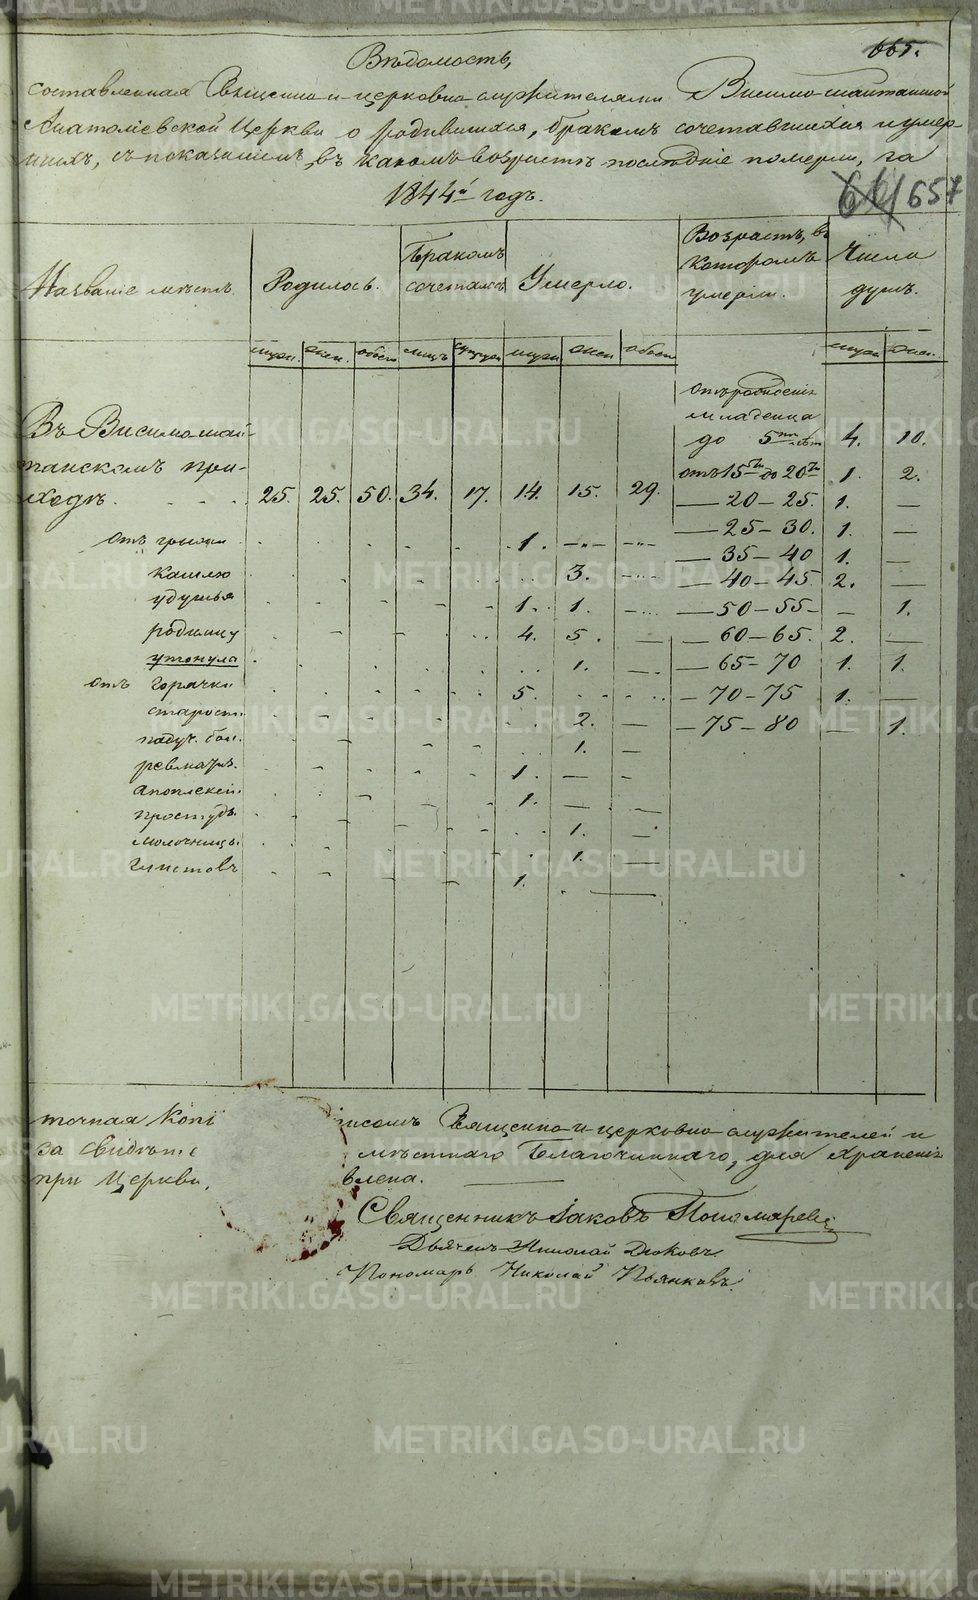 665.
Вѣдомость,
составленная Священно-и-церковно-служителями Висимо-шайтанской
Анатоліевской Церкви о родившихся, бракомъ сочетавшихся и умер-
шихъ, съ показаніемъ, въ какомъ возрастѣ послѣдніе померли, за
1844й годъ.
661 657
Названіе мѣстъ. Родилось. Бракомъ сочеталось Умерло. Возрастъ, въ которомъ умерли. Число душъ.
муж. жен. обоего лицъ супруж муж жен обоего муж жен.
Въ Висимошай-
танскомъ при-
ходѣ. 25. 25. 50. 34. 17. 14. 15. 29.
отъ грыжи 1. — —
кашлю 3. —
удушья 1. 1. —
родимцу 4. 5. —
утонула 1. —
отъ горячки 5.
старости 2. —
падуч. бол. 1. —
ревматиз. 1. — —
апоплексіи 1. — —
простудѣ 1. —
молочницы 1. —
глистовъ 1. —
отъ рожденія
младенца
до 5ти лѣт 4. 10.
отъ 15ти до 20ти 1. 2.
— 20 — 25. 1. —
— 25 — 30. 1. —
— 35 — 40 1. —
— 40 — 45 2. —
— 50 — 55 — 1.
— 60 — 65. 2. —
— 65 — 70 1. 1.
— 70 — 75 1. —
— 75 — 80 — 1.
точная копі писомъ Священно-и-церковно-служителей и
за свидѣте мѣстнаго Благочиннаго, для храненія
при Церкви, влена.
Священникъ Іаковъ Пономаревъ
Дьячекъ Николай Дюковъ.
Пономарь Николай Пьянковъ.
METRIKI.GASO-URAL.RU